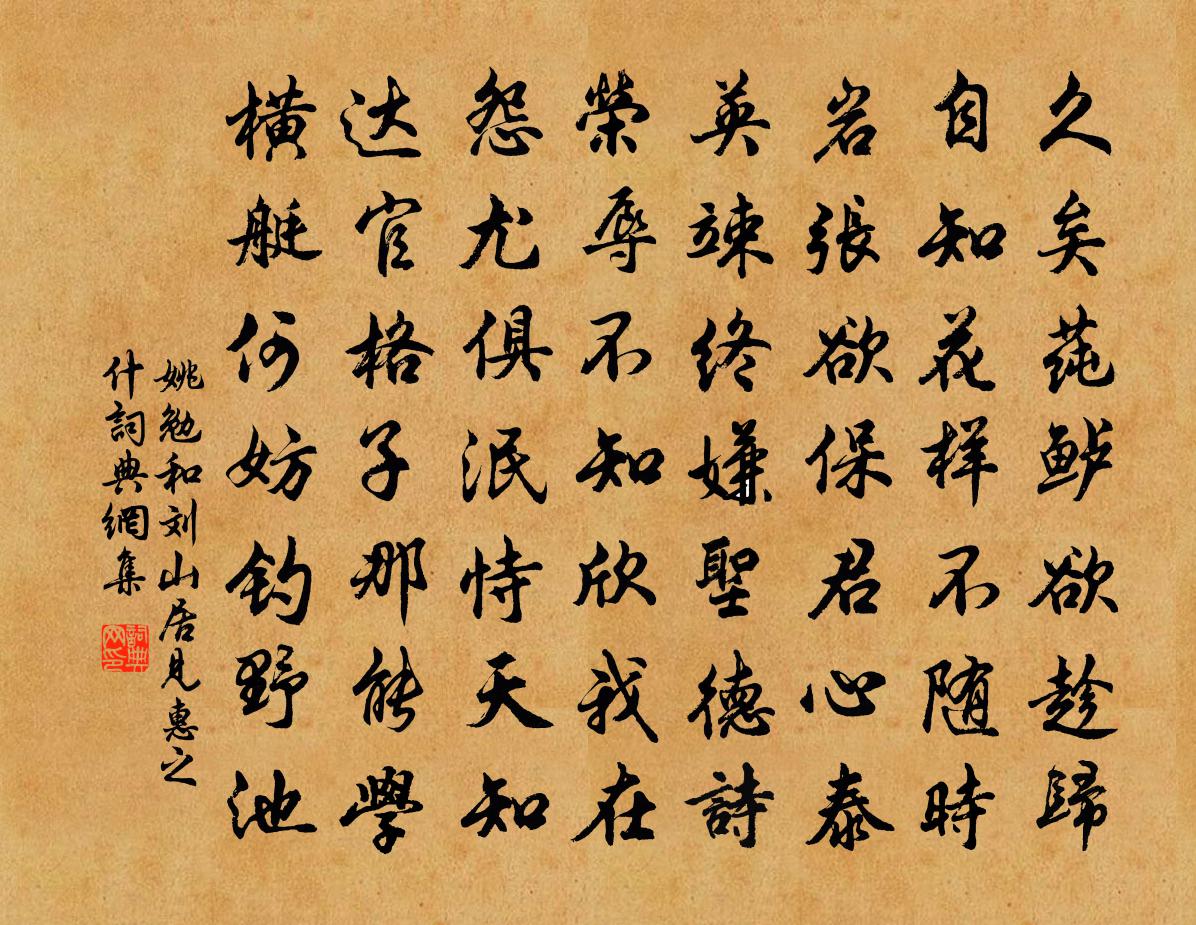 久矣莼鲈欲趁歸
自知花样不随時
岩張欲保君心泰
英竦终嫌聖德詩
榮辱不知欣我在
怨尤俱泯恃天知
达官格子那能學
横艇何妨钓野池
姚勉和刘山居見惠之
什詞典網集
詞典网印